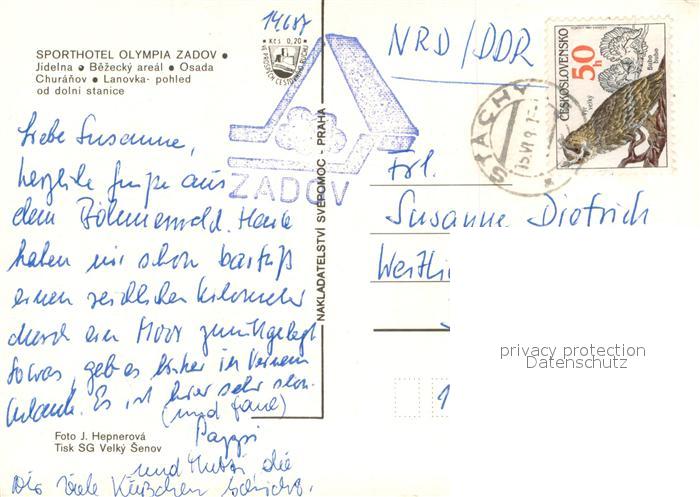 14687
Kčs 0,20
VE PROSPĚCH CESTOVNÍHO RUCHU
SPORTHOTEL OLYMPIA ZADOV •
Jídelna • Běžecký areál • Osada
Churáňov • Lanovka- pohled
od dolní stanice
NRD/DDR
ČESKOSLOVENSKO
50h
Bubo bubo
STACHY
ZADOV
NAKLADATELSTVÍ SVÉPOMOC - PRAHA
Liebe Susanne,
herzliche Grüße aus
dem Böhmerwald. Heute
haben wir schon barfuß
einen Kilometer
durch ein Moor zurückgelegt
Sowas gab es bisher in keinem
Urlaub. Es ist hier sehr schön
(und faul)
Pappi
und Mutti die
Dir viele Küßchen schicken.
Frl.
Susanne Dietrich
Foto J. Hepnerová
Tisk SG Velký Šenov
privacy protection
Datenschutz